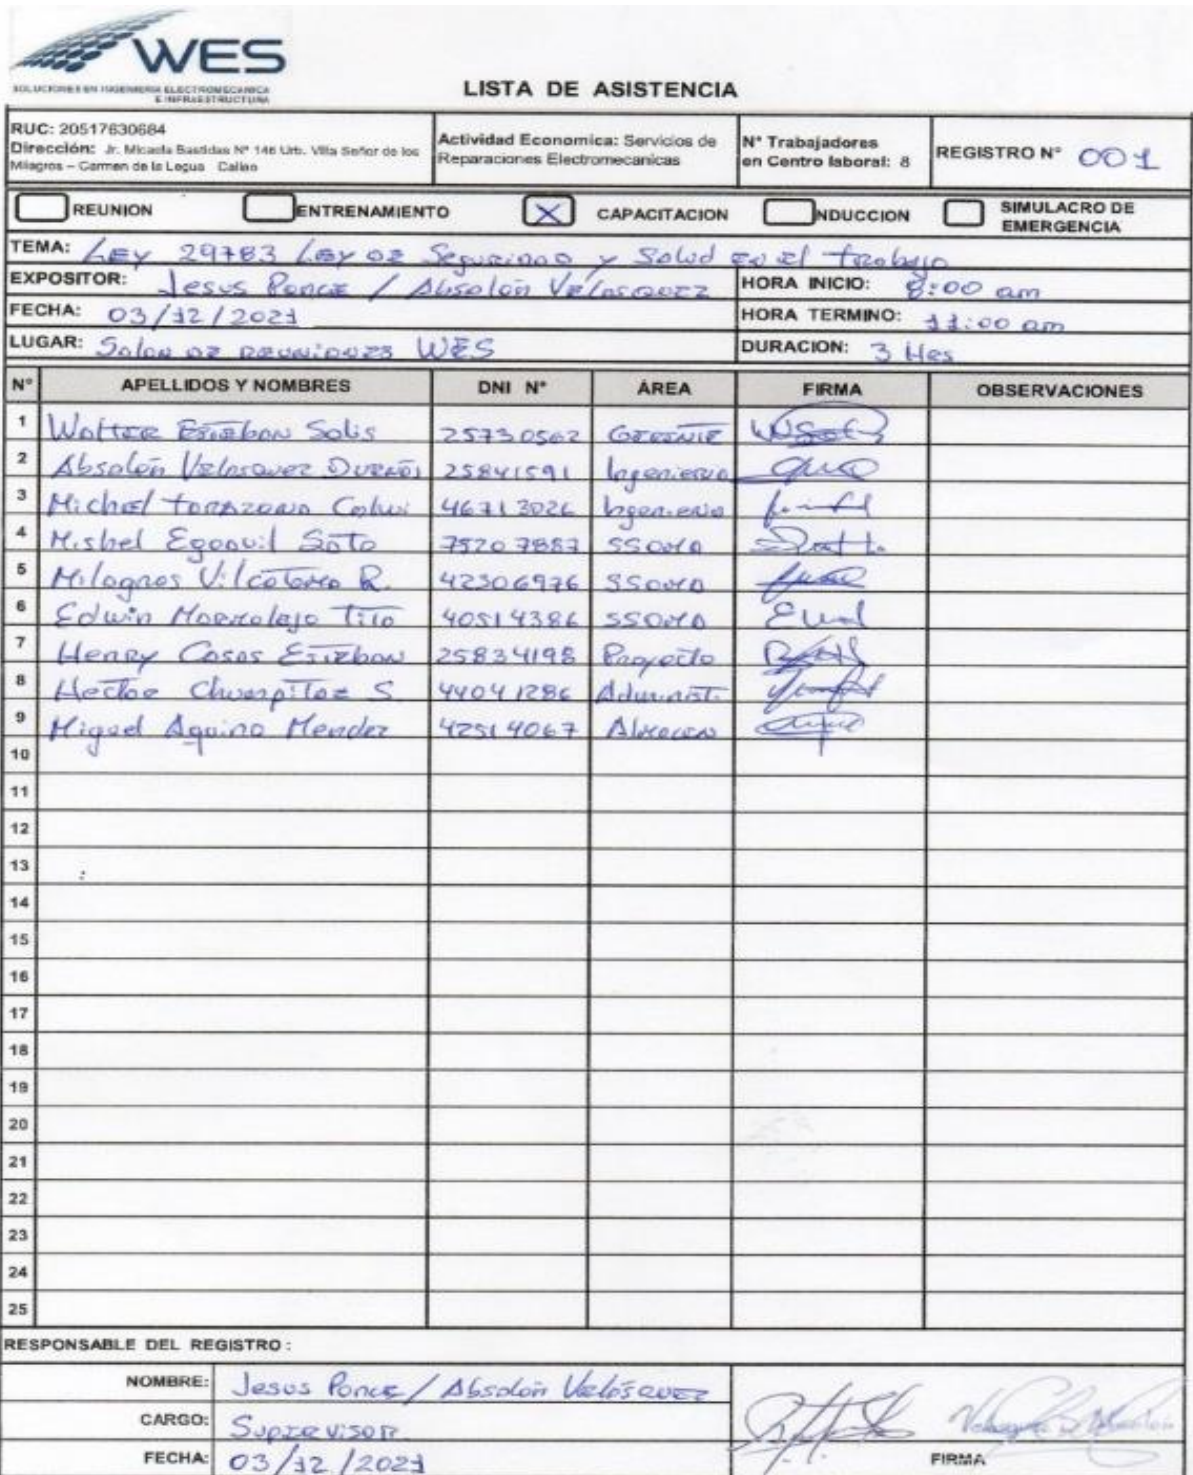 WES
SOLUCIONES EN INGENIERIA ELECTROMECANICA
E INFRAESTRUCTURA
LISTA DE ASISTENCIA
RUC: 20517630684
Dirección: Jr. Micaela Bastidas Nº 146 Urb. Villa Señor de los
Milagros – Carmen de la Legua Callao
Actividad Economica: Servicios de
Reparaciones Electromecanicas
N° Trabajadores
en Centro laboral: 8
REGISTRO N° 001
REUNION ENTRENAMIENTO X CAPACITACION INDUCCION SIMULACRO DE
EMERGENCIA
TEMA: Ley 29783 Ley de Seguridad y Salud en el trabajo
EXPOSITOR: Jesus Ponce / Absolón Velasquez HORA INICIO: 8:00 am
FECHA: 03/12/2021 HORA TERMINO: 11:00 am
LUGAR: Salon de reuniones WES DURACION: 3 Hrs
N° APELLIDOS Y NOMBRES DNI N° ÁREA FIRMA OBSERVACIONES
1 Walter Esteban Solis 25730562 Gerente
2 Absolón Velasquez 25841591 Ingenieria
3 Michael 46713026 Ingenieria
4 Mishel Egoavil Soto 75207887 SSOMA
5 Milagros R. 42306976 SSOMA
6 Edwin Tito 40514386 SSOMA
7 Henry Casas Esteban 25834198 Proyecto
8 Hector Chumpitaz S. 44041286 Administ.
9 Miguel Aquino Mendez 42514067 Almacen
10
11
12
13
14
15
16
17
18
19
20
21
22
23
24
25
RESPONSABLE DEL REGISTRO:
NOMBRE: Jesus Ponce / Absolón Velásquez
CARGO: Supervisor
FECHA: 03/12/2021 FIRMA